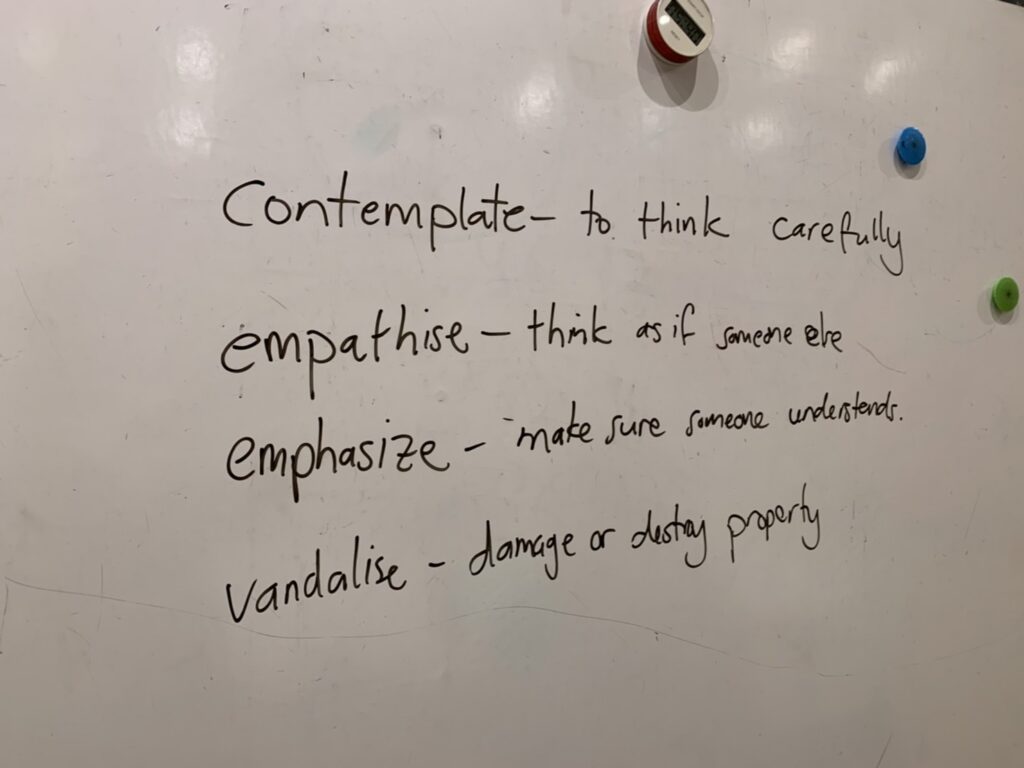 Contemplate - to think carefully
empathise - think as if someone else
emphasize - make sure someone understands.
vandalise - damage or destroy property